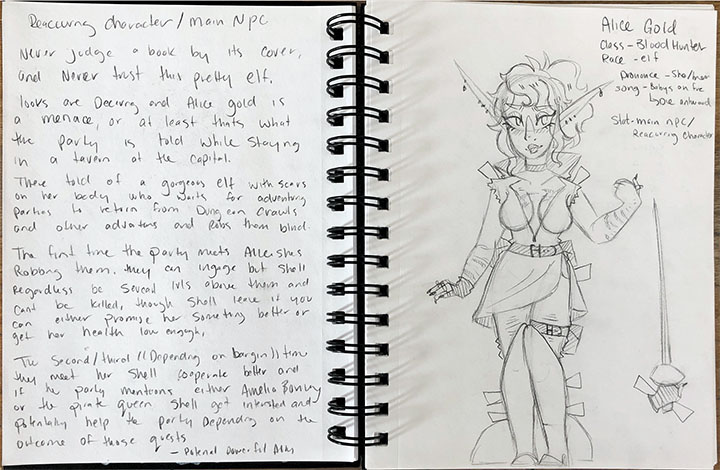 Reaccuring character/main NPC
Never judge a book by its cover,
and Never trust this pretty elf.
looks are Decieving and Alice gold is
a menace, or at least thats what
the party is told while Staying
in a tavern at the capital.
There told of a gorgeous elf with scars
on her body who waits for adventuring
parties to return from Dungeon Crawls
and other and Robs them blind.
The first time the party meets Alice shes
Robbing them. they can ingage but Shell
Regardless be Several lvls above them and
Cant be killed, though Shell leave if you
can either promise her Something better or
get her health low enough.
The Second/third ((Depending on bargin)) time
they meet her Shell Cooperate better and
if the party mentions either Amelia
or the pirate queen Shell get intrested and
potentially help the party Depending on the
outcome of those quests
- Potenal Powerful Ally
Alice Gold
Class - Blood Hunter
Race - elf
Pronounce - She/her
song - Babys on fire
by Die antwoord
Stat - main NPC/
Reaccuring character